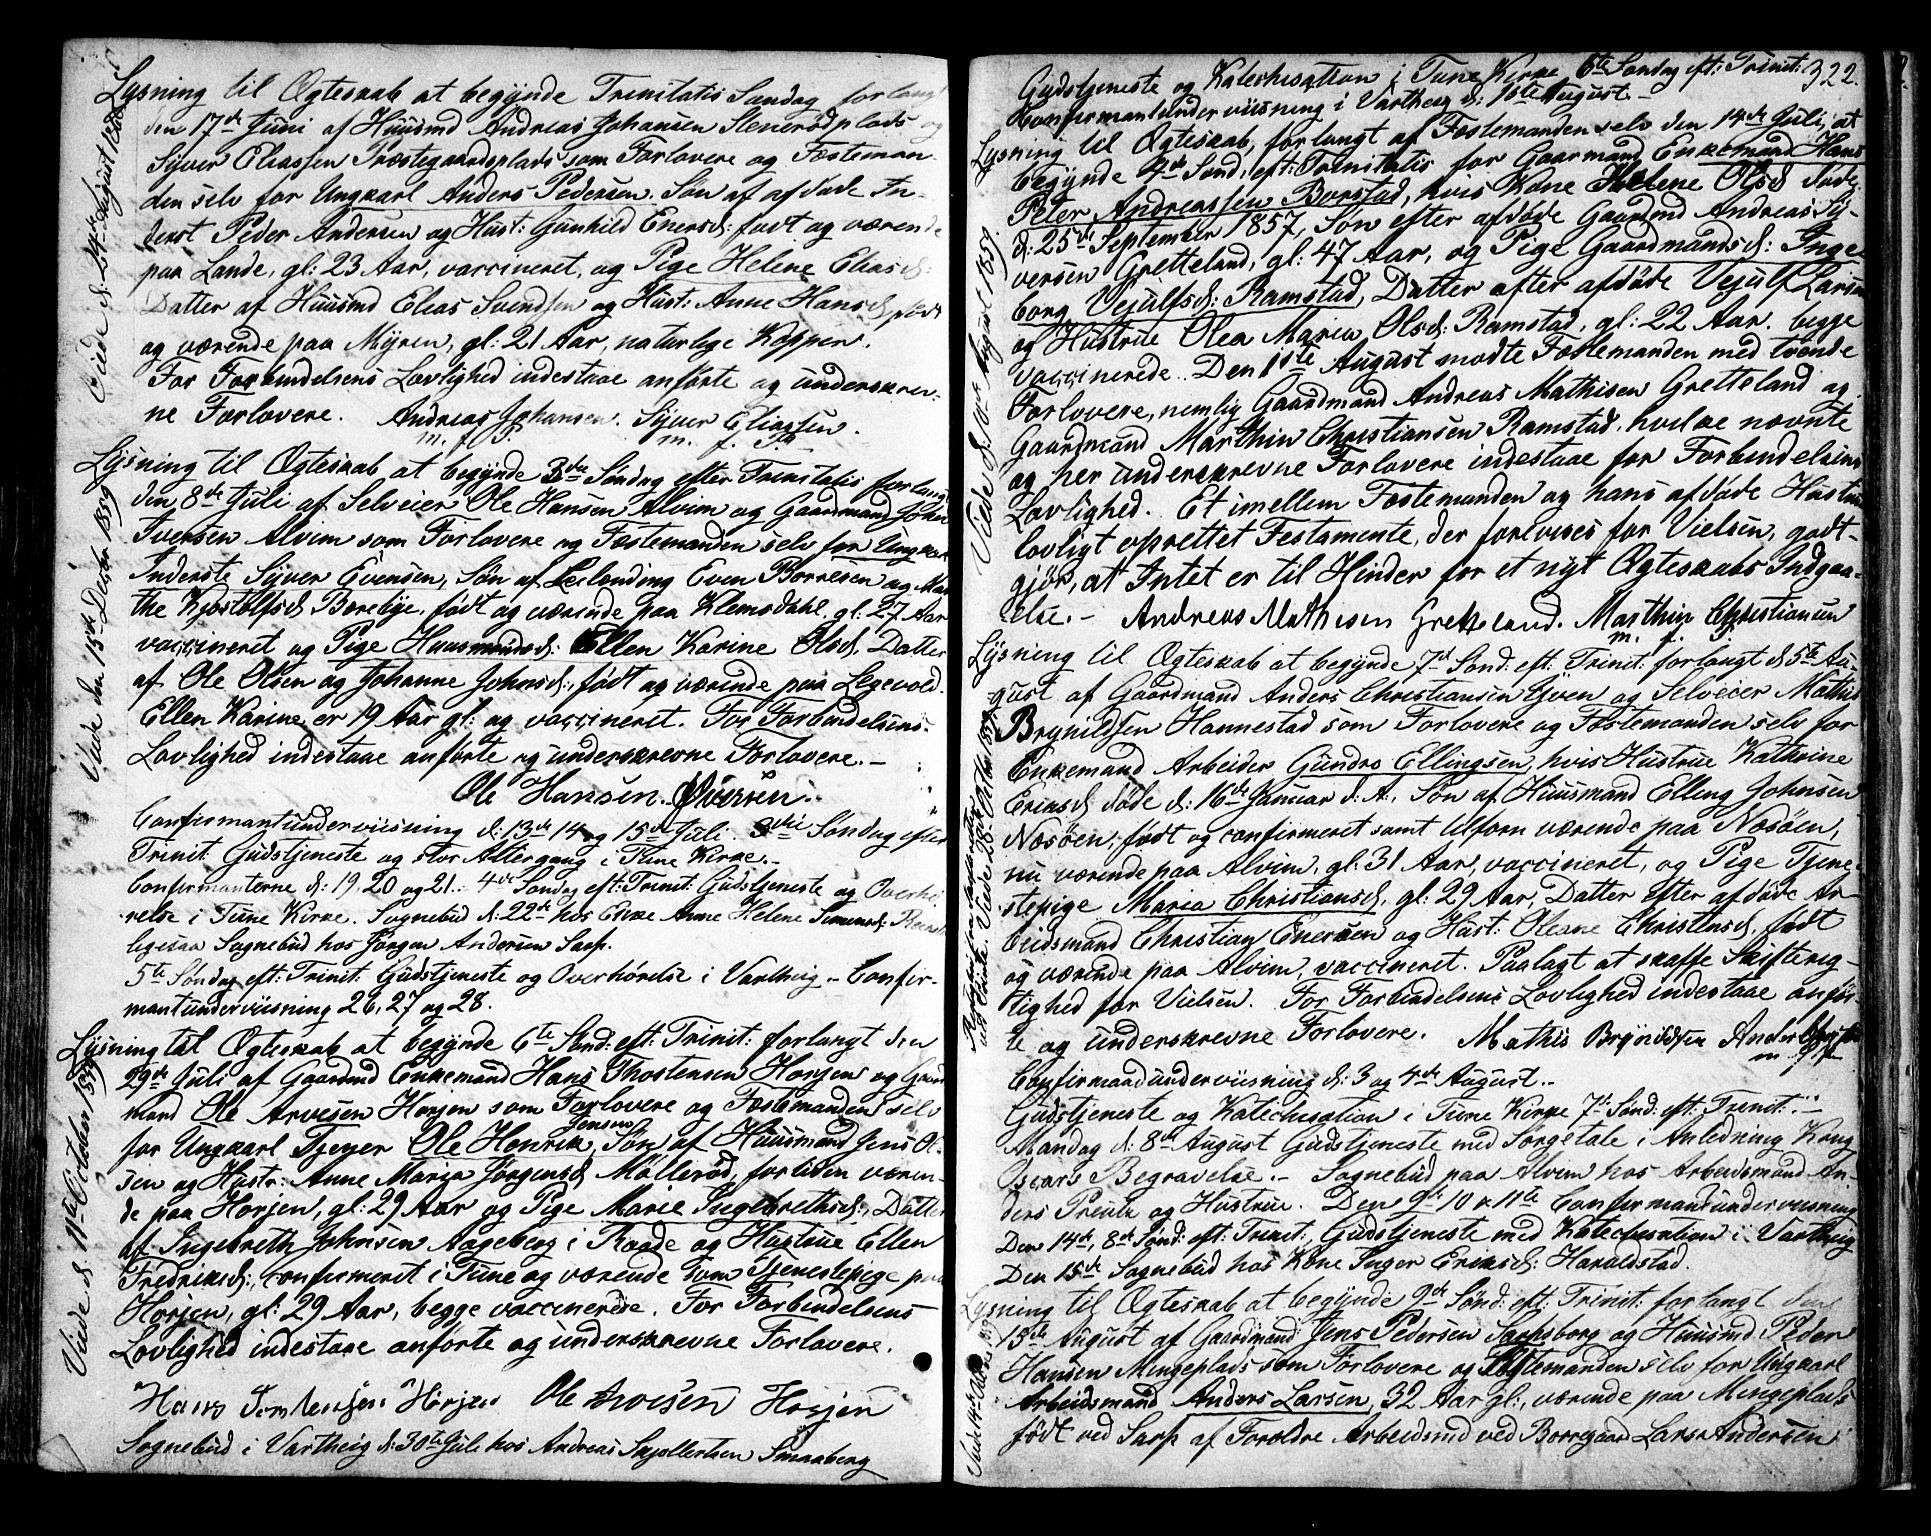 Lysning til Ægteskab at begynde Trinitatis Søndag forlangt
den 17de Juni af Huusmd Andreas Johansen Stenerødplads og
Syver Eliassen Præstegaardsplads som Forlovere og Fæsteman-
den selv for Ungkarl Anders Pedersen, Søn af afdøde In-
derst Peder Andersen og Hust: Gunhild Enersd: født og værende
paa Lande, gl: 23 Aar, vaccineret, og Pige Helene Eliasd:
Datter af Huusmd Elias Svendsen og Hust: Anne Hansd, født
og værende paa Myren, gl: 21 Aar, naturlige Kopper.
For Forbindelsens Lovlighed indestaae anførte og underskrev-
ne Forlovere. Andreas Johansen. Syver Eliassen.
m. f. P. m. f. P.
Viede d: 24de August 1859
Lysning til Ægteskab at begynde 3die Søndag efter Trinitatis forlangt
den 8de Juli af Selveier Ole Hansen Alvim og Gaardmand John
Iversen Alvim som Forlovere og Fæstemanden selv for Ungkarl
Inderste Syver Evensen, Søn af Leilænding Even Borresen og Mar-
the Kjostolfsd Borebye, født og værende paa Klemsdahl, gl: 27 Aar
vaccineret og Pige Huusmandsd: Ellen Karine Olsd, Datter
af Ole Olsen og Johanne Johnsd:, født og værende paa Legevold.
Ellen Karine er 19 Aar gl: og vaccineret. For Forbindelsens
Lovlighed indestaae anførte og underskrevne Forlovere. –
Ole Hansen.
Viede den 15de Decbr 1859
Confirmantunderviisning d: 13de 14 og 15de Juli. 3die Søndag efter
Trinit: Gudstjeneste og stor Altergang i Tune Kirke. –
Confirmanterne d: 19, 20 og 21. 4de Søndag eft: Trinit: Gudstjeneste og Overhø-
relse i Tune Kirke. Sognebud d: 22de hos Enke Anne Helene Simensd:
ligesaa Sognebud hos Jørgen Andersen Sarp.
5te Søndag eft: Trinit: Gudstjeneste og Overhørelse i Varteig – Confir-
mantunderviisning 26, 27 og 28.
Lysning til Ægteskab at begynde 6te Sønd: eft: Trinit: forlangt den
29de Juli af Gaardmd Enkemand Hans Thostensen Horjen og Gaard-
mand Ole Arvesen Horjen som Forlovere og Fæstemanden selv
for Ungkarl Tjener Ole Henrik Jensen, Søn af Huusmand Jens Ol-
sen og Hustr: Anne Maria Jørgensd Møllerød, fortiden væren-
de paa Horjen, gl: 29 Aar og Pige Marie Ingebrethsd:, Datter
af Ingebreth Johnsen Aageberg i Raade og Hustrue Ellen
Fredriksd:, confirmeret i Tune og værende som Tjenestepige paa
Horjen, gl: 29 Aar, begge vaccinerede. For Forbindelsens
Lovlighed indestaae anførte og underskrevne Forlovere.
Hans Torstensen Horjen Ole Arvesen Horjen
Viede d. 11te October 1859
Sognebud i Vartheig d: 30te Juli hos Andreas Skjollertsen Smaaberg
322.
Gudstjeneste og Katechisation i Tune Kirke 6te Søndag eft: Trinit:
Confirmantunderviisning i Vartheig d: 1ste August. –
Lysning til Ægteskab, forlangt af Fæstemanden selv den 14de Juli, at
begynde 4de Sønd, eft: Trinitatis for Gaarmand Enkemand Hans
Peter Andreassen Borstad, hvis Kone Helene Olsd døde
d: 25de September 1857, Søn efter afdøde Gaardmd Andreas Sy-
versen Gretteland, gl: 47 Aar, og Pige Gaardmandsd: Inge-
borg Vejulfsd: Ramstad, Datter efter afdøde Vejulf Larsen
og Hustrue Olea Maria Olsd: Ramstad, gl: 22 Aar. begge
vaccinerede. Den 1ste August mødte Fæstemanden med tvende
Forlovere, nemlig Gaardmand Andreas Mathisen Gretteland og
Gaardmand Marthin Christiansen Ramstad, hvilke nævnte
og her underskrevne Forlovere indestaae for Forbindelsens
Lovlighed. Et imellem Fæstemanden og hans afdøde Hustrue
lovligt oprettet Testamente, der forevises før Vielsen, godt-
gjør, at Intet er til Hinder for et nyt Ægteskabs Indgaa-
else. – Andreas Mathisen Gretteland. Marthin Christiansen
m. f. P.
Viede d: 10de August 1859.
Lysning til Ægteskab at begynde 7d Sønd: eft: Trinit: forlangt d. 5te Au-
gust af Gaardmand Anders Christiansen Yven og Selveier Mathis
Brynildsen Hannestad som Forlovere og Fæstemanden selv for
Enkemand Arbeider Gundro Ellingsen, hvis Hustrue Kathrine
Eriksd døde d: 16de Januar d: A., Søn af Huusmand Elling Johnsen
Nosøen, født og confirmeret samt tilforn værende paa Nosøen,
nu værende paa Alvim, gl: 31 Aar, vaccineret, og Pige Tjene-
stepige Maria Christiansd, gl: 29 Aar, Datter efter afdøde Ar-
beidsmand Christian Enersen og Hust: Oleane Christensd, født
og værende paa Alvim, vaccineret. Paalagt at skaffe Skifterig-
tighed før Vielsen. For Forbindelsens Lovlighed indestaae anfør-
te og underskrevne Forlovere. Mathis Brynildsen Anders Christiansen
m. f. P.
Viede 28 Octbr 1859
Confirmandunderviisning d: 3 og 4de August. –
Gudstjeneste og Katechisation i Tune Kirke 7d Sønd: eft: Trinit: –
Mandag d: 8de August Gudstjeneste med Sørgetale i Anledning Kong
Oscars Begravelse. – Sognebud paa Alvim hos Arbeidsmand An-
ders Preutz og Hustrue. Den 9de 10 & 11te Confirmantunderviisning
Den 14de, 8de Sønd: eft: Trinit: Gudstjeneste med Katechisation i Vartheig
Den 15de Sognebud hos Kone Inger Eriksd: Haraldstad.
Lysning til Ægteskab at begynde 9de Sønd: eft: Trinit: forlangt den
15te August af Gaardmand Jens Pedersen Sarpsborg og Huusmd Peder
Hansen Mingeplads som Forlovere og Fæstemanden selv for Ungkarl
Arbeidsmand Anders Larsen, 32 Aar gl:, værende paa Mingeplads
født ved Sarp af Forældre Arbeidsmd ved Borregaard Lars Andersen